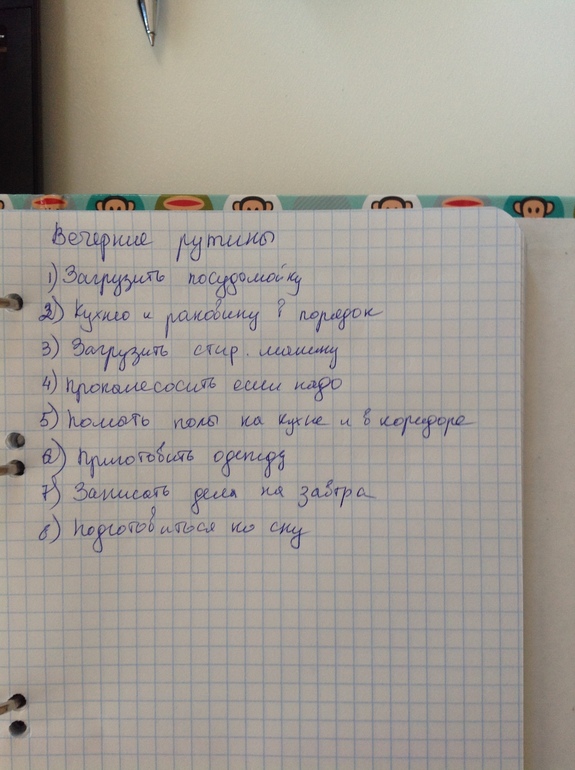 Вечерние рутины
1) Загрузить посудомойку
2) Кухню и раковину в порядок
3) Загрузить стир. машину
4) Пропылесосить если надо
5) Помыть полы на кухне и в коридоре
6) Приготовить одежду
7) Записать дела на завтра
8) Подготовиться ко сну